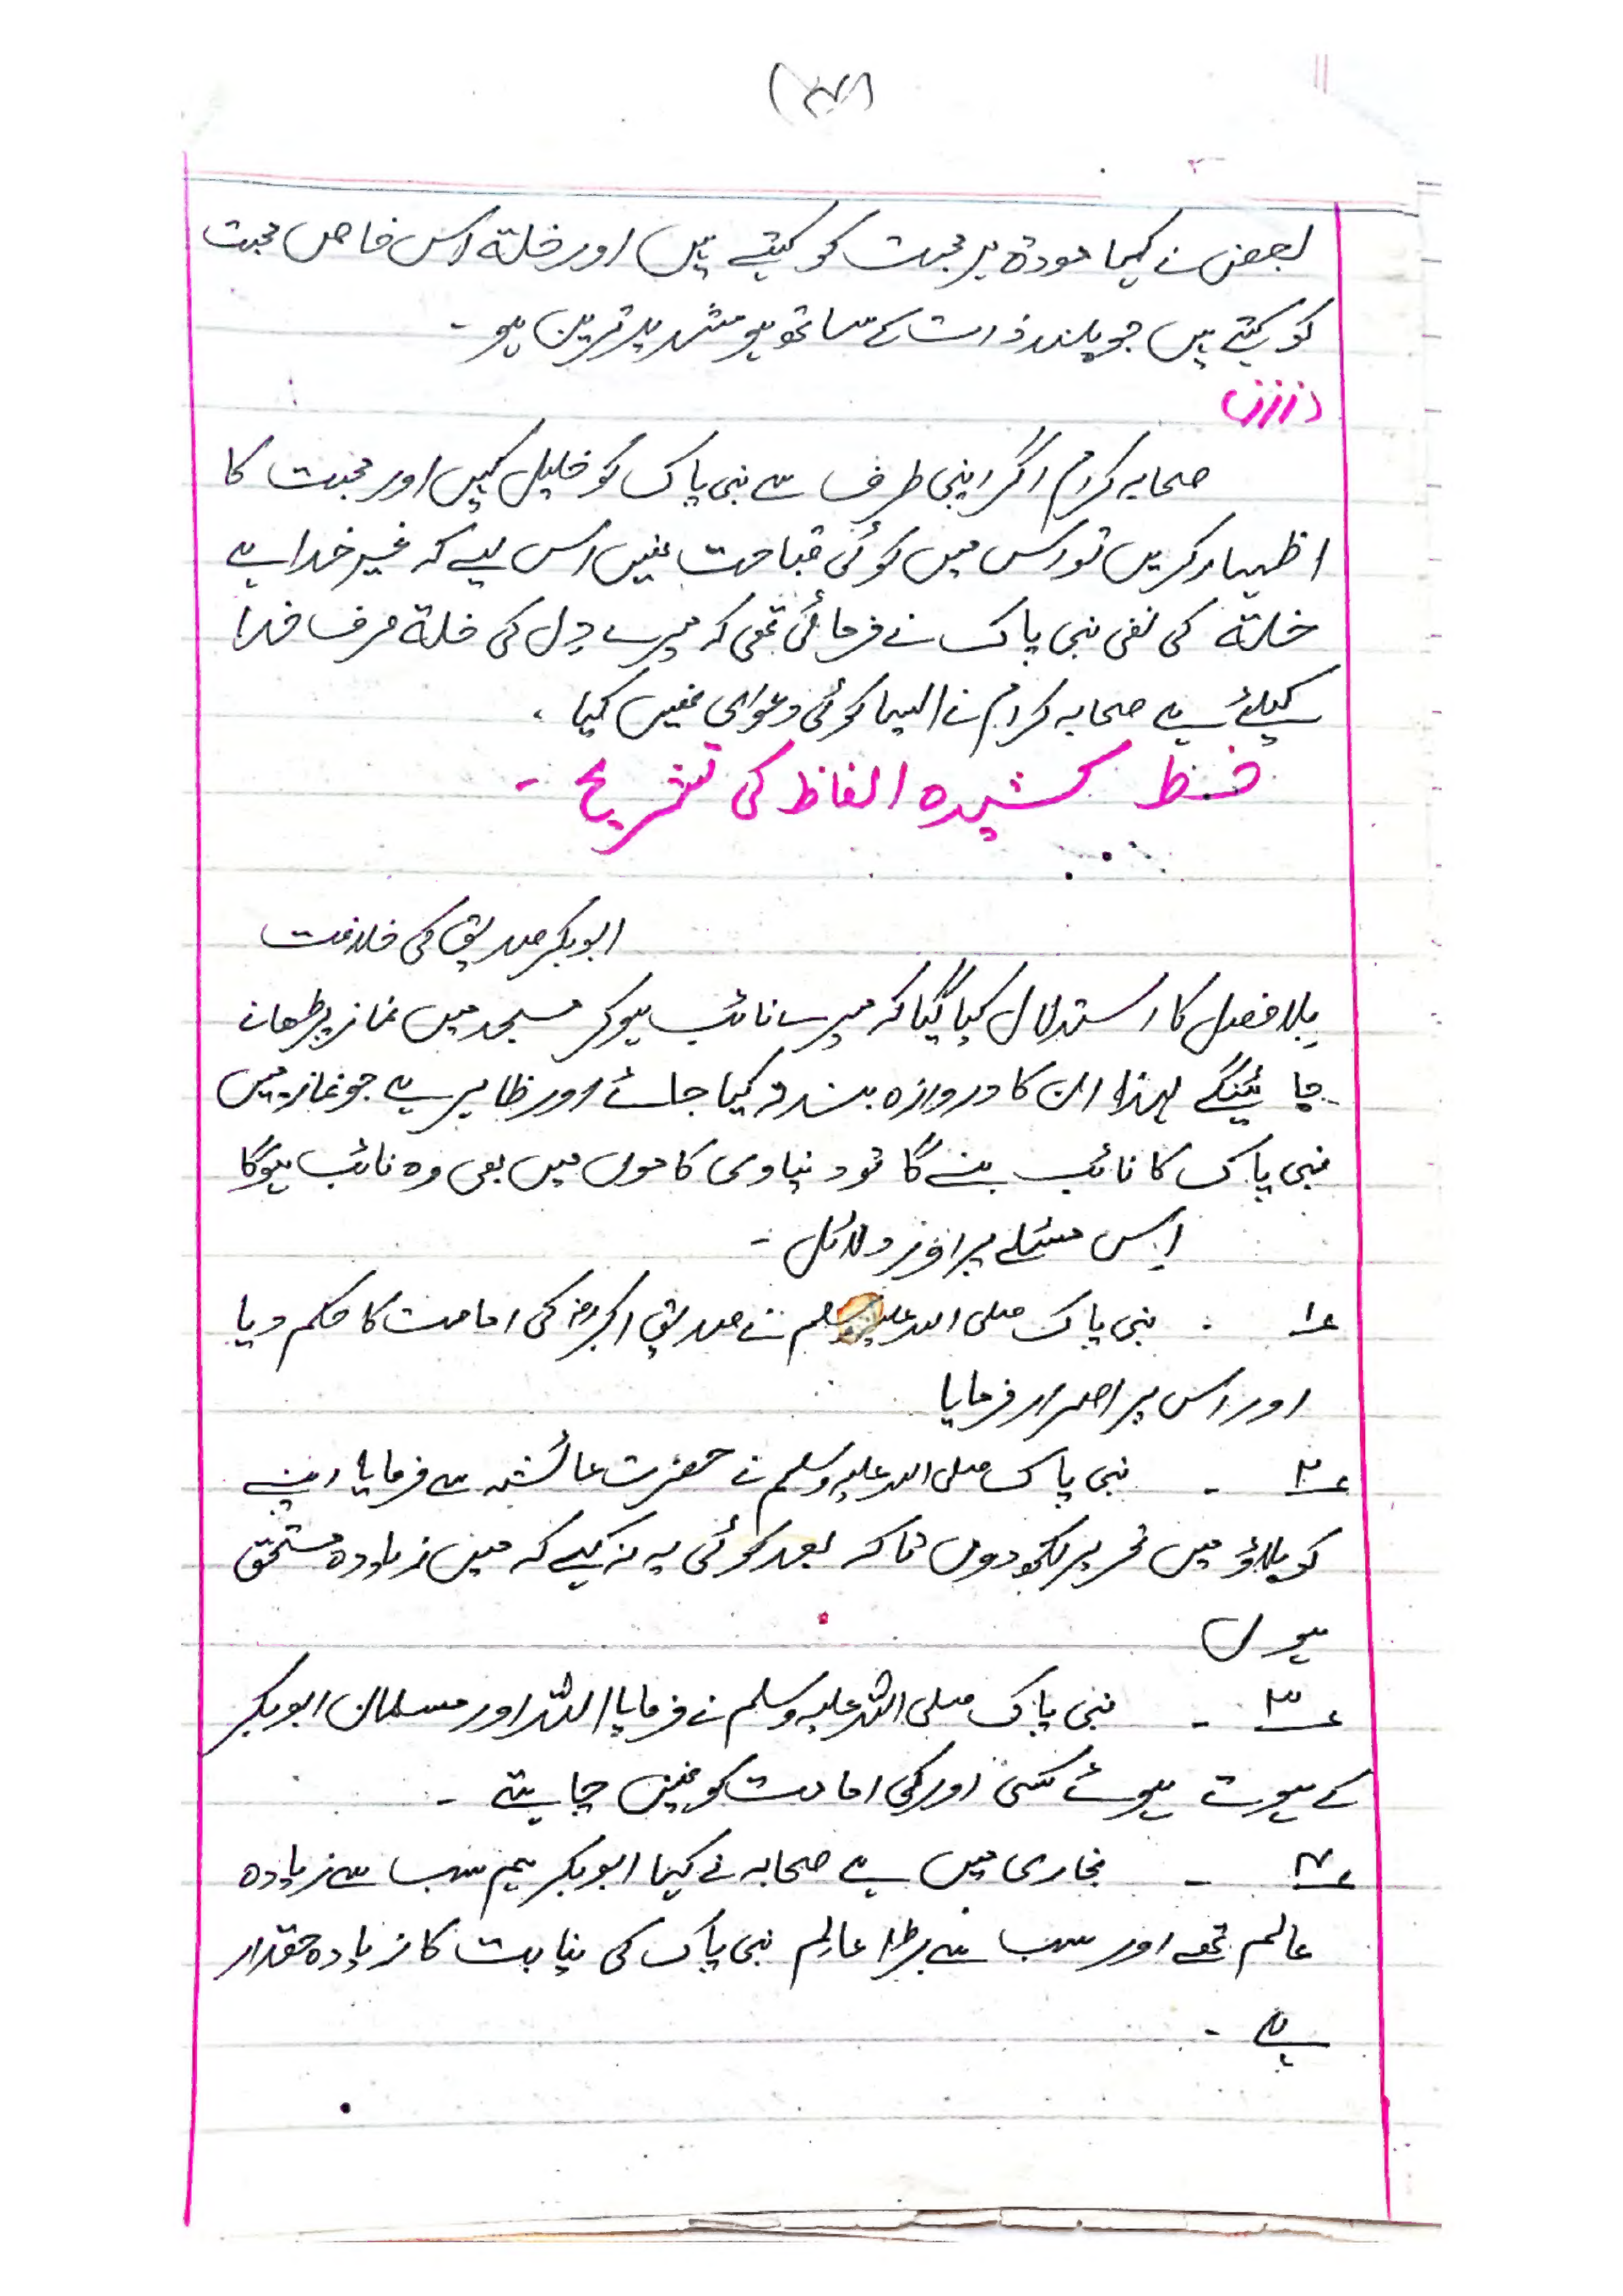 بعض نے کہا مودة ہر محبت کو کہتے ہیں اور خلة اس خاص محبت
کو کہتے ہیں جو بلند ذات کے ساتھ ہو شدید ترین ہو ۔
صحابہ کرام اگر اپنی طرف سے نبی پاک کو خلیل کہیں اور محبت کا
اظہار کریں تو اس میں کوئی قباحت نہیں اس لیے کہ غیر خدا سے
خلة کی نفی نبی پاک نے فرمائی تھی کہ میرے دِل کی خلة صرف خدا
کیلئے ہے صحابہ کرام نے ایسا کوئی دعوای نہیں کیا ۔
خط کشیدہ الفاظ کی تشریح ۔
ابوبکر صدیق کی خلافت
بِلا فصل کا استدلال کیا گیا کہ میرے نائب ہوکر مسجد میں نماز پڑھانے
جائینگے لہذا ان کا دروازہ بند نہ کیا جائے اور ظاہر ہے جو نماز میں
نبی پاک کا نائب بنے گا تو دنیاوی کاموں میں بھی وہ نائب ہوگا
اِس مسئلے پر اور دلائل :-
؏۱ ۔ نبی پاک صلی اللہ علیہ وسلم نے صدیق اکبرؓ کی امامت کا حکم دیا
اور اس پر اصرار فرمایا
؏۲ ۔ نبی پاک صلی اللہ علیہ وسلم نے حضرت عائشہ سے فرمایا اپنے
کو بلاؤ میں تحریر لکھ دوں تاکہ بعد کوئی یہ نہ کہے کہ میں زیادہ مستحق
ہوں
؏۳ ۔ نبی پاک صلی اللہ علیہ وسلم نے فرمایا اللہ اور مسلمان ابوبکر
کے ہوتے ہوئے کسی اور کی امامت کو نہیں چاہتے ۔
؏۴ ۔ بخاری میں ہے صحابہ نے کہا ابوبکر ہم سب سے زیادہ
عالم تھے اور سب سے بڑا عالِم نبی پاک کی نیابت کا زیادہ حقدار
ہے ۔